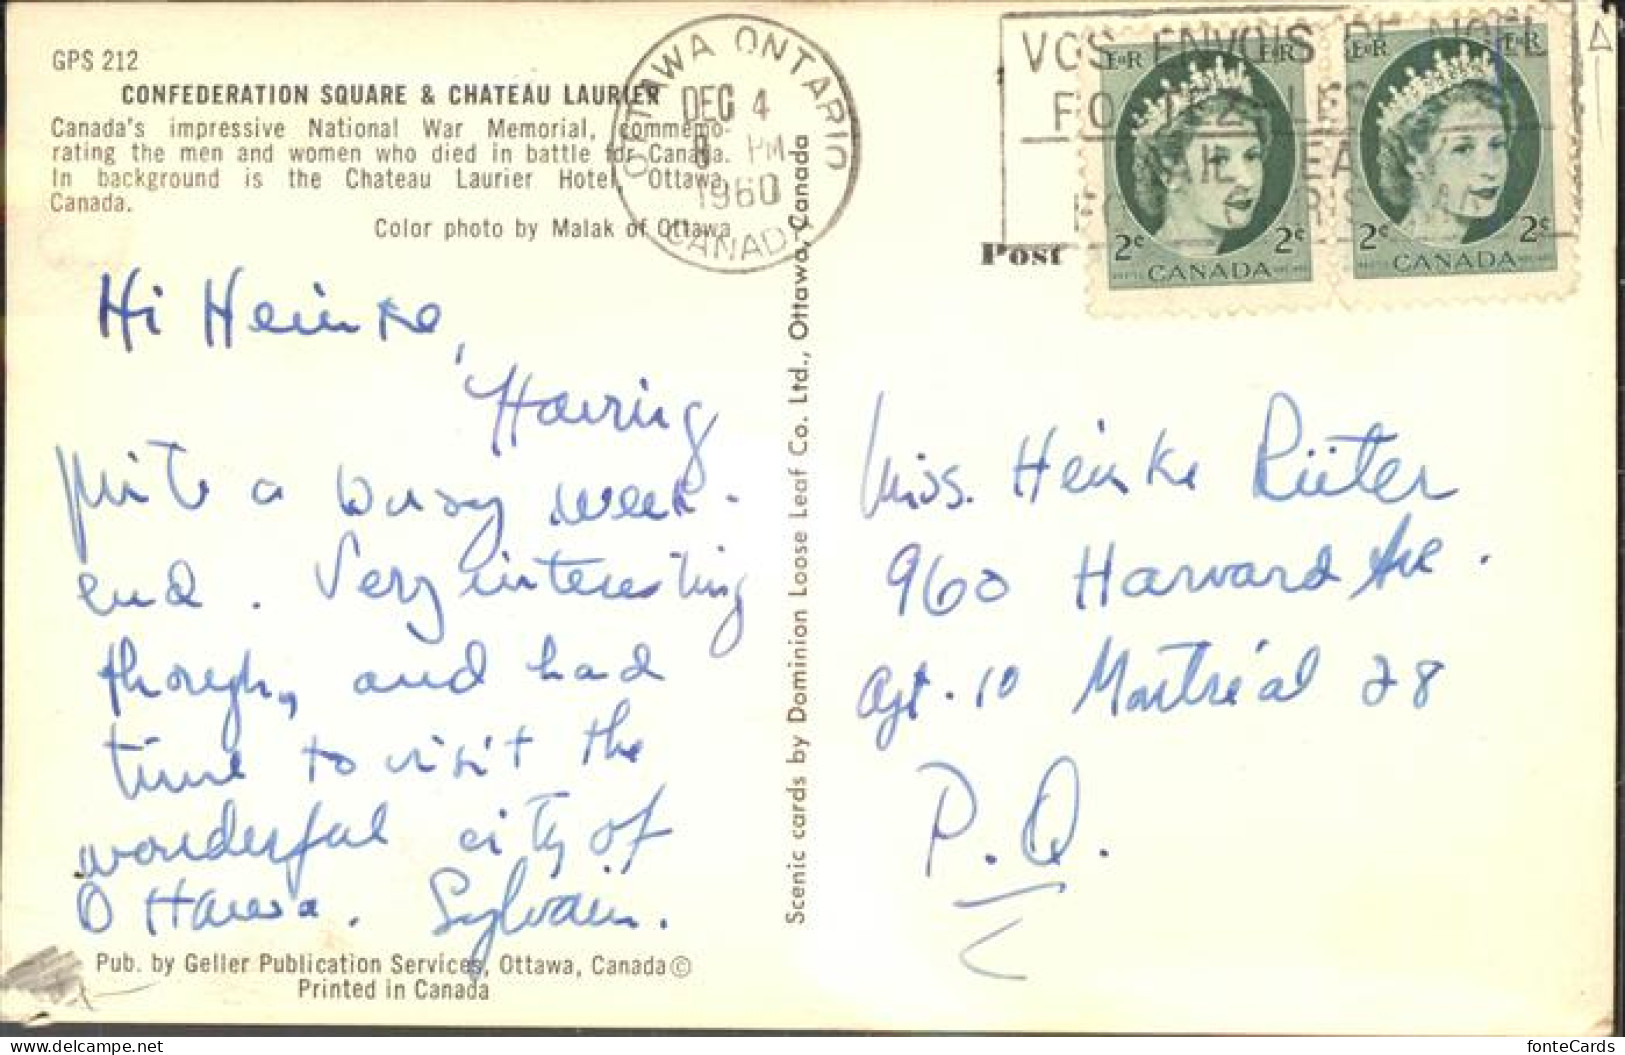 GPS 212
CONFEDERATION SQUARE & CHATEAU LAURIER
Canada's impressive National War Memorial, commemo-
rating the men and women who died in battle for Canada.
In background is the Chateau Laurier Hotel, Ottawa,
Canada.
Color photo by Malak of Ottawa
OTTAWA ONTARIO
DEC 4
PM
1960
CANADA
VOS ENVOIS DE NOËL
POSTEZ-LES
E II R E II R
2¢ CANADA 2¢
E II R E II R
2¢ CANADA 2¢
Post
Hi Heinke,
Having
quite a busy week-
end. Very interesting
though, and had
time to visit the
wonderful city of
Ottawa. Sylvain.
Miss. Heinke Rüter
960 Harvard Ave.
Apt. 10 Montréal 28
P.Q.
Scenic cards by Dominion Loose Leaf Co. Ltd., Ottawa, Canada
Pub. by Geller Publication Services, Ottawa, Canada ©
Printed in Canada
delcampe.net
fonteCards